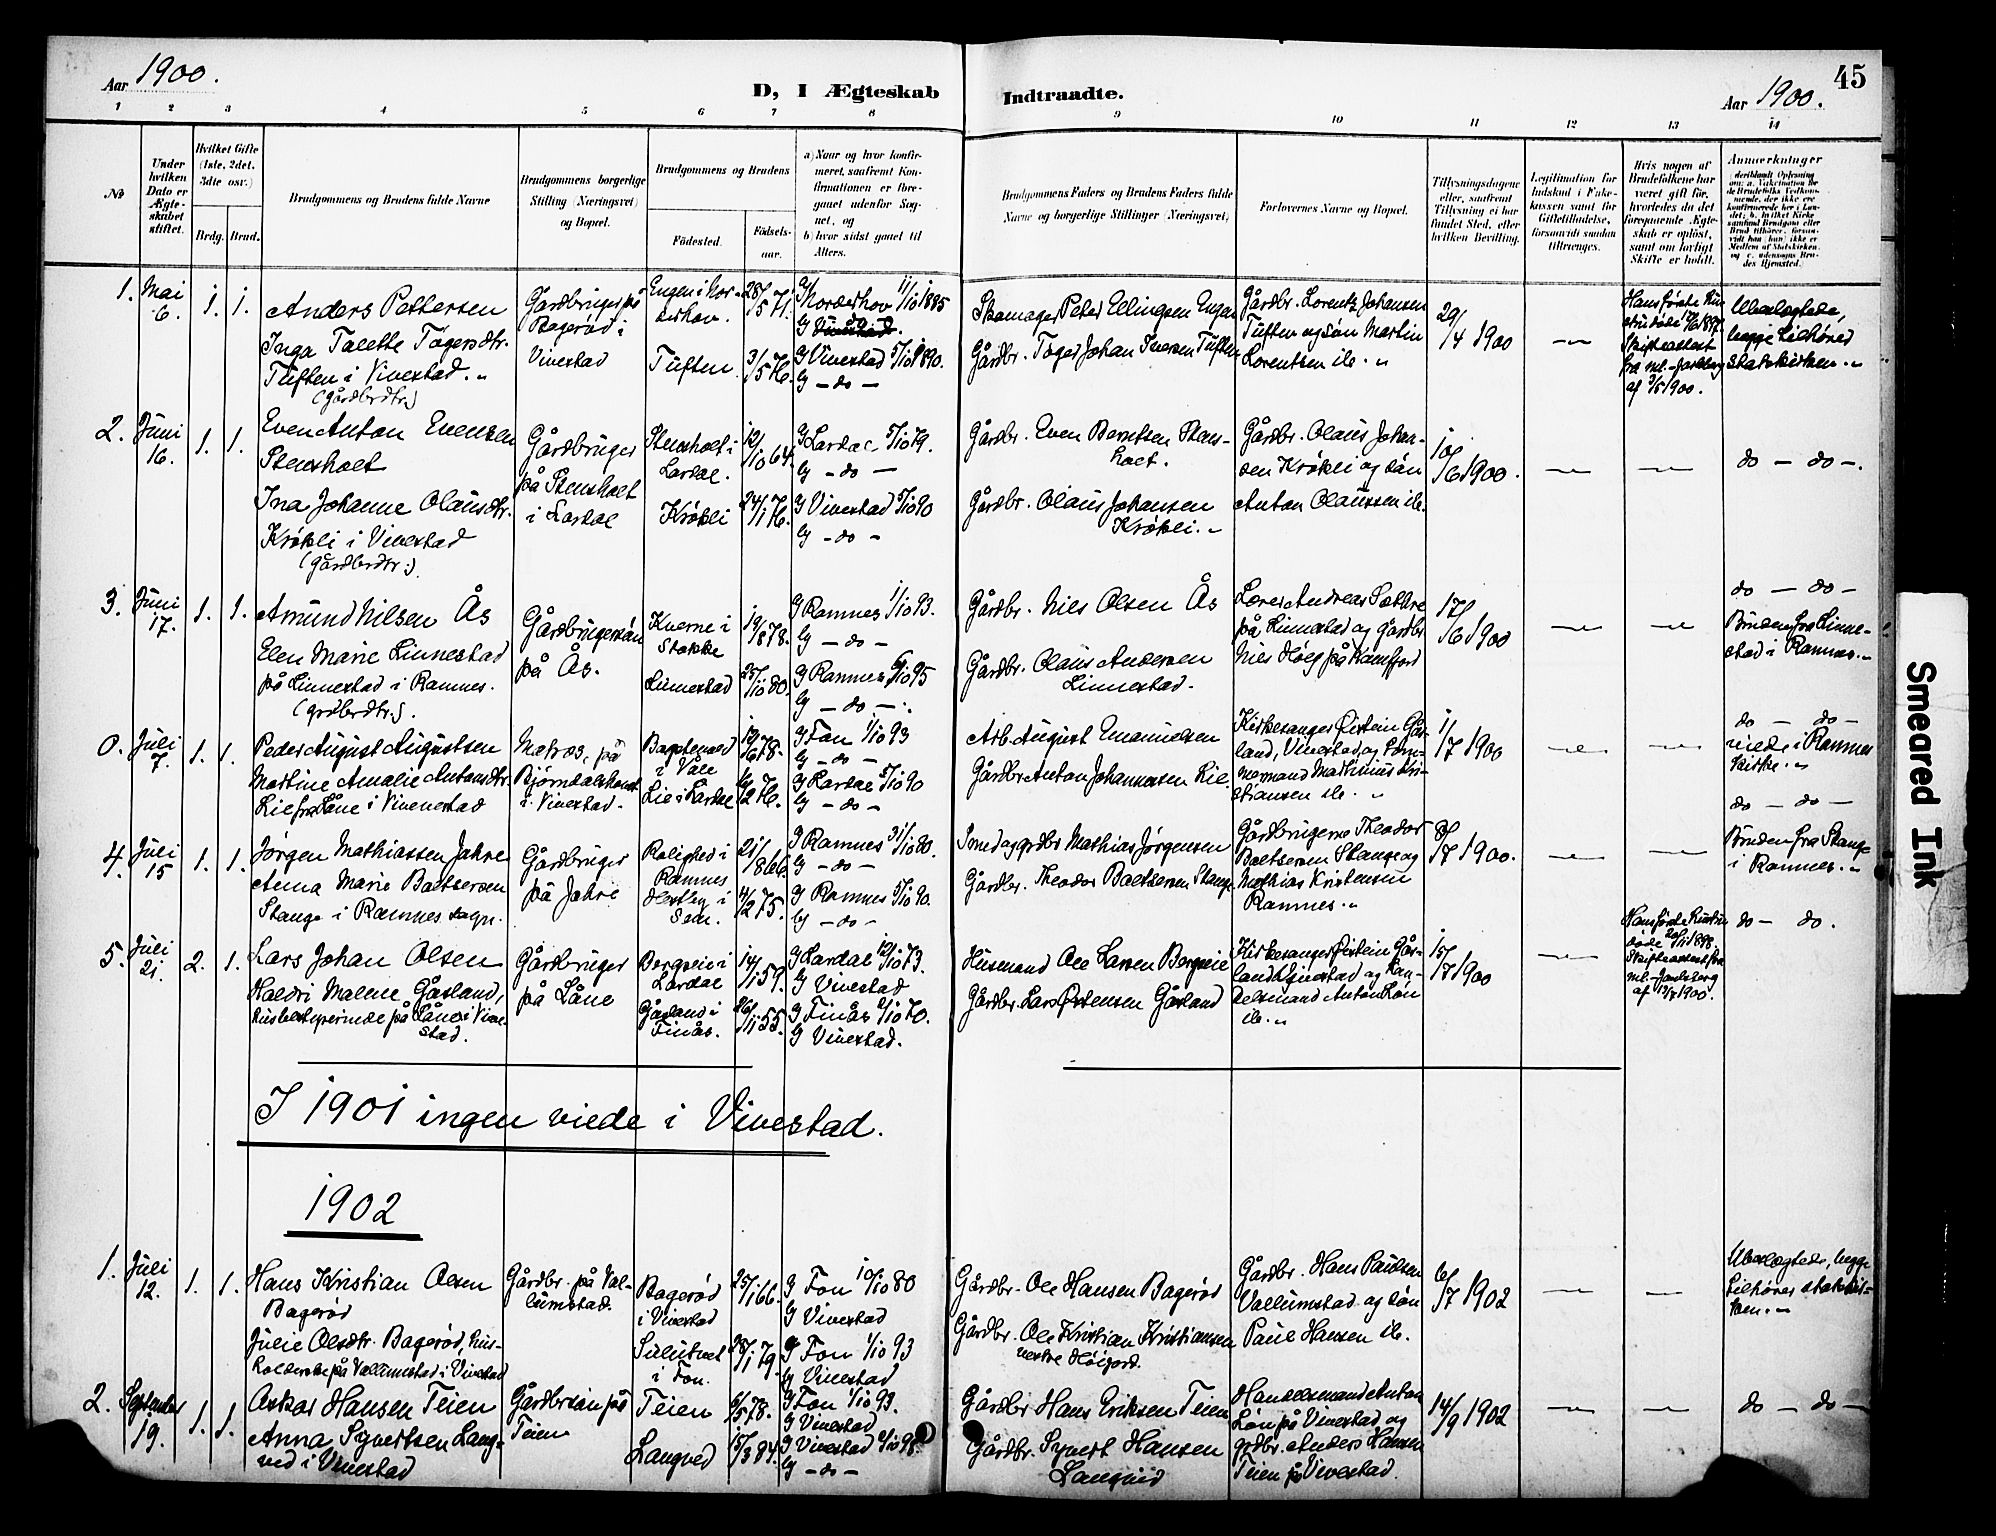 Aar 1900.
D, I Ægteskab Indtraadte.
45
Aar 1900.
1 2 3 4 5 6 7 8 9 10 11 12 13 14
No
Under hvilken Dato er Ægteskabet stiftet.
Hvilket Gifte (1ste, 2det, 3dte osv.)
Brdg. Brud.
Brudgommens og Brudens fulde Navne
Brudgommens borgerlige Stilling (Næringsvei) og Bopæl.
Brudgommens og Brudens
Fødested. Fødselsaar.
a) Naar og hvor konfirmeret, saafremt Konfirmationen er foregaaet udenfor Sognet, og
b) hvor sidst gaaet til Alters.
Brudgommens Faders og Brudens Faders fulde Navne og borgerlige Stillinger (Næringsvei).
Forlovernes Navne og Bopæl.
Tillysningsdagene eller, saafremt Tillysning ei har fundet Sted, efter hvilken Bevilling.
Legitimation for Indskud i Enkekassen samt for Giftetilladelse, forsaavidt saadan tiltrænges.
Hvis nogen af Brudefolkene har været gift før, hvorledes da det foregaaende Ægteskab er opløst, samt om lovligt Skifte er holdt.
Anmærkninger
1. Mai 6. 1. 1.
Anders Pettersen
Inga Talette Tøgersdtr.
Tuften i Vivestad.
(gårdbrdtr.)
Gårdbruger på
Bagerød i
Vivestad
Engen i Norderhov. 28/5 71.
Tuften 3/5 76.
G Norderhov 11/10 1885
G Vivestad 5/10 1890.
G – do –
Skomager Peter Ellingsen Engen
Gårdbr. Tøger Johan Iversen Tuften
Gårdbr. Lorentz Johansen
Tuften og søn Martin
Lorentsen ib.
29/4 1900
af 3/5 1900.
Ubeslægtede,
begge tilhører
statskirken.
2. Juni 16. 1. 1.
Even Anton Evensen
Stensholt
Ina Johanne Olausdtr.
Krøkli i Vivestad
(gårdbrdtr.)
Gårdbruger
på Stensholt
i Lardal
Stensholt i
Lardal. 12/10 64.
Krøkli 24/1 76.
G Lardal 5/10 79.
G – do –
G Vivestad 5/10 90
G – do –
Gårdbr. Even Berntsen Stensholt.
Gårdbr. Olaus Johansen
Krøkli.
Gårdbr. Olaus Johansen Krøkli og søn
Anton Olaussen ib.
10/6 1900.
do – do –.
3. Juni 17. 1. 1.
Amund Nilsen Ås
Elen Marie Linnestad
på Linnestad i Ramnes.
(grdbrdtr.).
Gårdbrugersøn
på Ås.
Kverne i
Stokke 19/8 78.
Linnestad 25/11 80.
G Ramnes 1/10 93.
G – do –
G Ramnes 6/10 95
G – do –
Gårdbr. Nils Olsen Ås
Gårdbr. Olaus Andersen
Linnestad.
Lærer Andreas Sættre
på Linnestad og gårdbr.
Nils Høeg på Kamfjord
17/6 1900
do – do –
Bruden fra Linnestad i Ramnes.
0. Juli 7. 1. 1.
Peder August Augustsen
Martine Amalie Antonsdtr.
Lie fra Låne i Vivestad
Matros, på
i Vivestad.
i Våle
Lie i Lardal
G Fon 1/10 93
G – do –
G Lardal 5/10 90
G – do –
Arb. August Emanuelsen
Gårdbr. Anton Johannessen Lie.
Kirkesanger Øistein Gåsland, Vivestad, og
Mathinius Kristiansen ib.
1/7 1900
do – do –
viede i Ramnes
kirke.
4. Juli 15 1. 1.
Jørgen Mathiassen Jahre
Anna Marie Baltsersen
Stange i Ramnes sogn.
Gårdbruger
på Jahre
Rolighed i
Ramnes 21/1 8 66.
i Sem. 4/12 75.
G Ramnes 31/10 80.
G – do –
G Ramnes 5/10 90.
G – do –
Smed og grdbr Mathias Jørgensen
Gårdbr. Theodor Baltsersen Stange
Gårdbrugerne Theodor
Baltsersen Stange og
Mathias Kristensen
Ramnes.
8/7 1900.
do – do –
Bruden fra Stange
i Ramnes.
5. Juli 21. 2. 1.
Lars Johan Olsen
Haldri Malene Gåsland,
husbestyrerinde på Låne i Vivestad.
Gårdbruger
på Låne
Bergseie i
Lardal 14/1 59.
Gåsland i
Finås. 26/11 55.
G Lardal 12/10 73.
G Vivestad
G Finås 2/10 70.
G Vivestad.
Husmand Ole Larsen Bergseie
Gårdbr. Lars Østensen Gåsland
Kirkesanger Øistein Gåsland Vivestad og Handelsmand Anton Løn
ib.
15/7 1900
Hans første hustru
døde 20/11 1898.
Skifteattest fra
ml.-Jarlsberg
af 13/7 1900.
do – do.
I 1901 ingen viede i Vivestad.
1902
1. Juli 12. 1. 1.
Hans Kristian Olsen
Bagerød
Julie Olsdtr. Bagerød, husholderske på Vallumstad i Vivestad
Gårdbr. på Vallumstad.
Bagerød
i Vivestad 25/1 66.
i Fon. 28/1 79.
G Fon 10/10 80
G Vivestad
G Fon 1/10 93
G Vivestad
Gårdbr. Ole Hansen Bagerød
Gårdbr. Ole Kristian Kristiansen
vestre Høigord.
Gårdbr. Hans Paulsen
Vallumstad og søn
Paul Hansen ib.
6/7 1902
Ubeslægtede, begge
tilhører statskirken.
2. September 19. 1. 1.
Oskar Hansen Teien
Anna Syvertsen Langved i Vivestad
Gårdbrsøn på
Teien
Teien 6/5 78.
Langved 15/3 84.
G Fon 1/10 93.
G Vivestad
G Vivestad 2/10 98.
G – do –
Gårdbr Hans Eriksen Teien
Gårdbr. Syvert Hansen
Langvid
Handelsmand Anton
Løn på Vivestad og
grdbr. Anders Hansen
Teien på Vivestad.
14/9 1902
do – do –
Smeared Ink